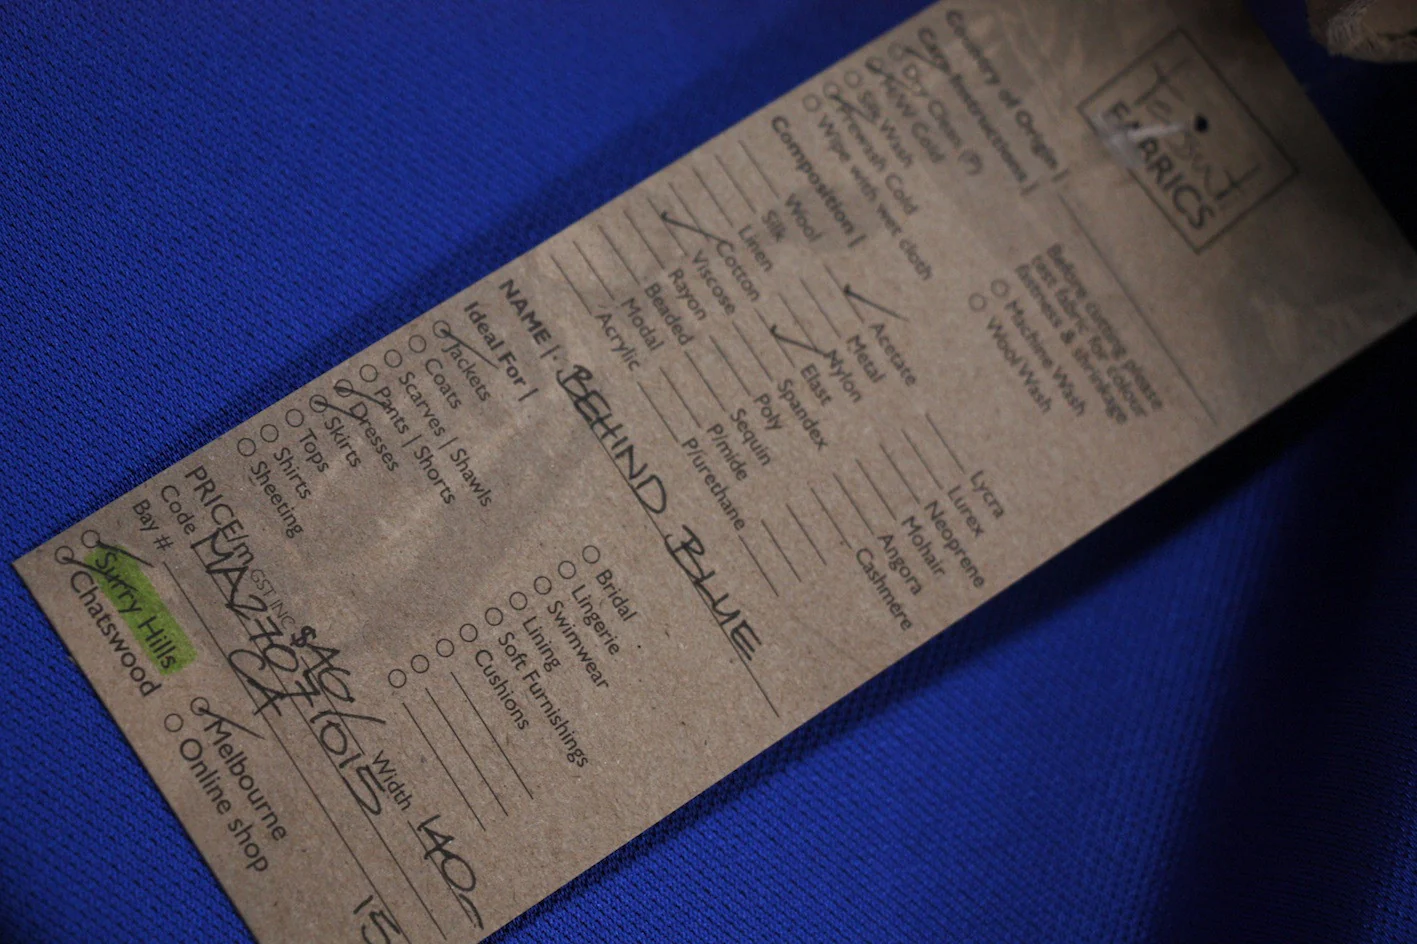 Tessuti
FABRICS
Country of Origin |
Care Instructions |
Dry Clean (P)
H/W Cold
Silk Wash
Prewash Cold
Wipe with wet cloth
Machine Wash
Wool Wash
Before cutting please
test fabric for colour
fastness & shrinkage
Composition |
Wool
Silk
Linen
Cotton
Viscose
Rayon
Beaded
Modal
Acrylic
Acetate
Metal
Nylon
Elast
Spandex
Poly
Sequin
P/mide
P/urethane
Lycra
Lurex
Neoprene
Mohair
Angora
Cashmere
NAME | BEHIND BLUE
Ideal For |
Jackets
Coats
Scarves | Shawls
Pants | Shorts
Dresses
Skirts
Tops
Shirts
Sheeting
Bridal
Lingerie
Swimwear
Lining
Soft Furnishings
Cushions
PRICE/m GST INC $46/ Width 140
Code MA2707 1015 15
Bay # CA
Surry Hills
Chatswood
Melbourne
Online shop